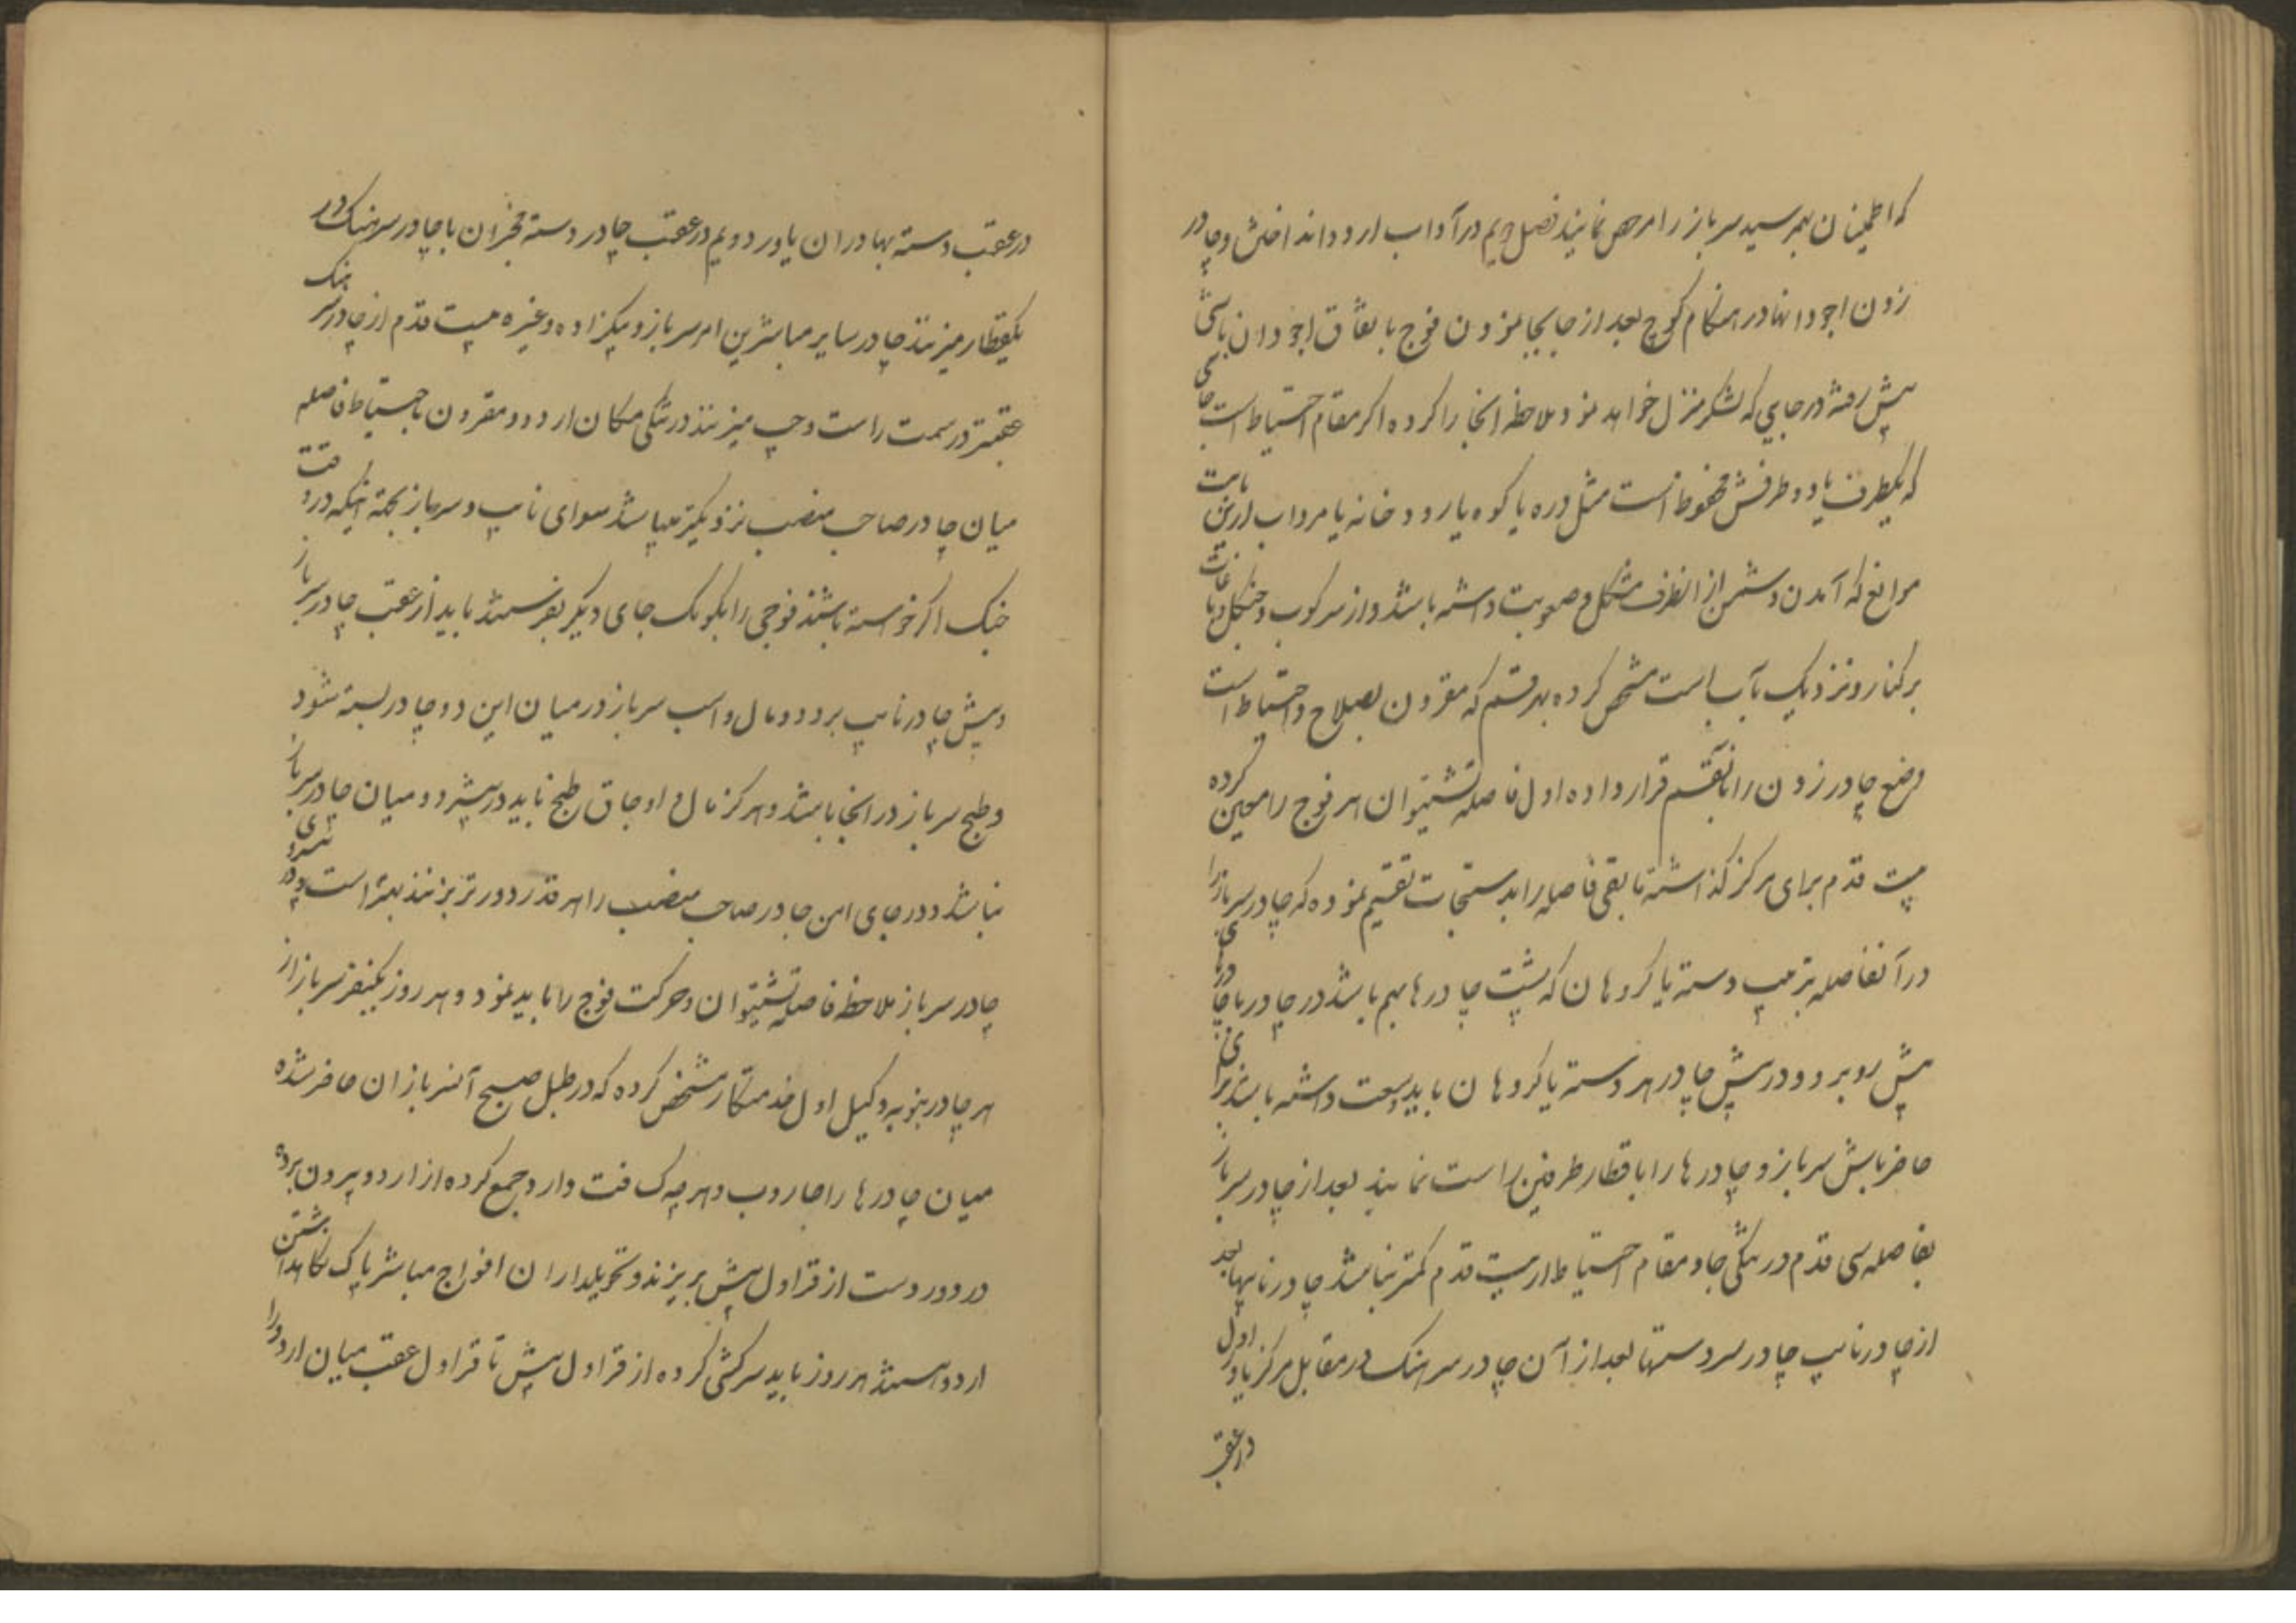 که اطمینان بهمرسید سرباز را مرخص نمایند فصل دویم در آداب اردو انداختن و چادر
زدن اجودانها در هنکام کوچ بعد از جابجا نمودن فوج باتفاق اجودان باشی
پیش رفته در جایی که لشکر منزل خواهد نمود ملاحظه آنجا را کرده اکر مقام احتیاط است جای
که یکطرف یا دو طرفش محفوظ است مثل دره یا کوه یا رودخانه یا مرداب
موانع که آمدن دشمن از انطرف مشکل و صعوبت داشته باشد و از سرکوب و جنکل و باغات
برکنار و نزدیک بآب است مشخص کرده بهر قسم که مقرون بصلاح و احتیاط است
وضع چادر زدن را بآنقسم قرار داده اول فاصله شتیوان هر فوج را معین کرده
بیست قدم برای مرکز کذاشته مابقی فاصله را بدستجات تقسیم نموده که چادر سرباز را
در آنفاصله بترتیب دسته یا کروهان که پشت چادرها بهم باشد در چادر با
پیش روبرو و در پیش چادر هر دسته یا کروهان باید وسعت داشته باشد برای
حاضرباش سرباز و چادرها را با قطار طرفین راست نمایند بعد از چادر سرباز
بفاصله سی قدم در تنکی جا و مقام احتیاط از بیست قدم کمتر نباشد چادر نایبها بعد
از چادر نایب چادر سردستها بعد از آن چادر سرهنک در مقابل مرکز یاور اول
در عقب
در عقب دسته بهادران یاور دویم در عقب چادر دسته مخبران با چادر سرهنک در
یکقطار میزنند چادر سایر مباشرین امر سرباز و بیکزاده و غیره بیست قدم از چادر سرهنک
عقبتر در سمت راست و چپ میزنند در تنکی مکان اردو و مقرون باحتیاط فاصله
میان چادر صاحب منصب نزدیکتر میباشد سوای نایب و سرباز بجهة اینکه در وقت
جنک اکر خواسته باشند فوجی را بکومک جای دیکر بفرستند باید از عقب چادر سرباز
و پیش چادر نایب برود و مال و اسب سرباز در میان این دو چادر بسته شود
و طبخ سرباز در آنجا باشد و هرکز مال و اوجاق طبخ نباید در پیشرو و میان چادر سرباز
نباشد و در جای امن چادر صاحب منصب را هر قدر دورتر بزنند بهتر است و در
چادر سرباز ملاحظه فاصله شتیوان و حرکت فوج را باید نمود و هر روز یکنفر سرباز از
هر چادر بنوبه وکیل اول خدمتکار مشخص کرده که در طبل صبح آنسربازان حاضر شده
میان چادرها را جاروب و هر چه کثافت دارد جمع کرده از اردو بیرون برده
در دور دست از قراول پیش بریزند و تحویلداران افواج مباشر پاک نکاهداشتن
اردو هستند هر روز باید سرکشی کرده از قراول پیش تا قراول عقب میان اردو را